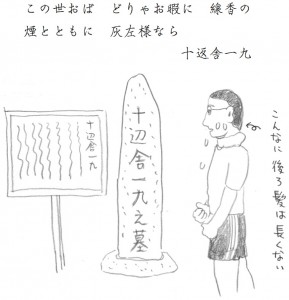 この世おば どりゃお暇に 線香の
煙とともに 灰左様なら
十返舎一九
十辺舎一九
十辺舎一九之墓
こんなに後ろ髪は長くない